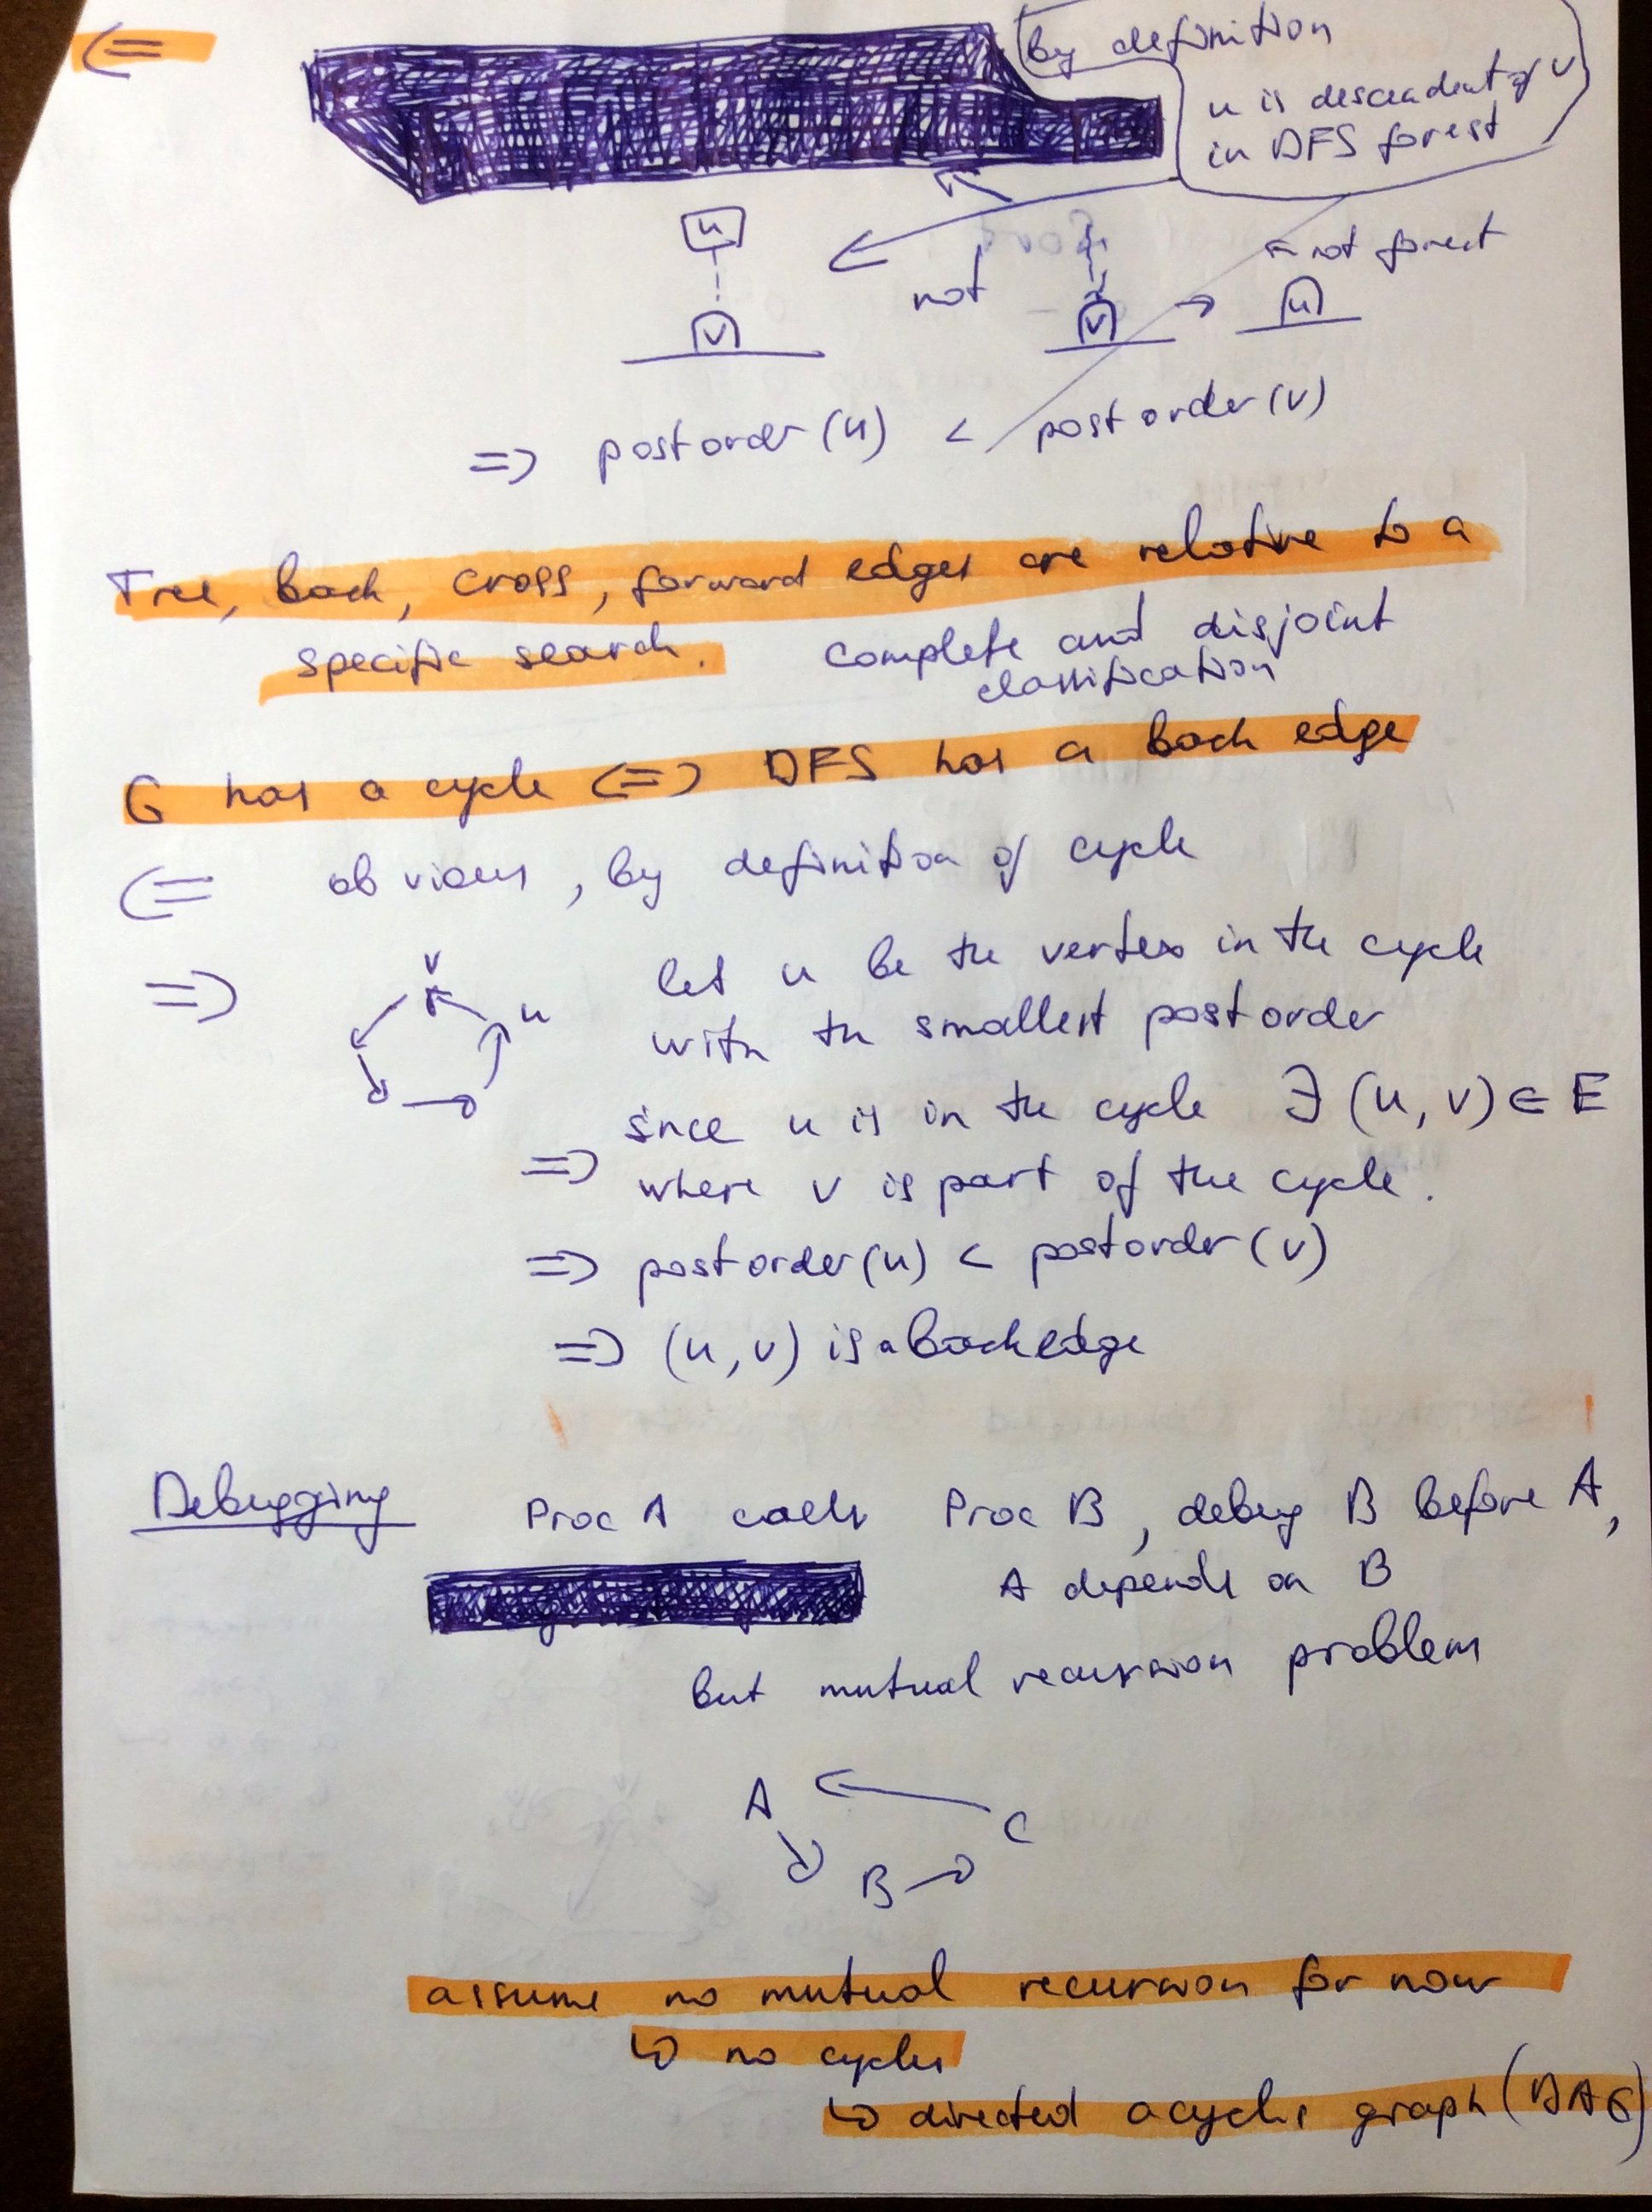 <=
by definition
u is descendent of v
in DFS forest
u
v
not
v
→
u
← not forest
=> postorder(u) < postorder(v)
Tree, back, cross, forward edges are relative to a
specific search. Complete and disjoint
classification
G has a cycle <=> DFS has a back edge
<= obvious, by definition of cycle
=> v u let u be the vertex in the cycle
with the smallest postorder
since u is in the cycle ∃ (u, v) ∈ E
=> where v is part of the cycle.
=> postorder(u) < postorder(v)
=> (u, v) is a back edge
Debugging Proc A calls Proc B, debug B before A,
A depends on B
but mutual recursion problem
A
C
B
assume no mutual recursion for now
↳ no cycles
↳ directed acyclic graph (DAG)